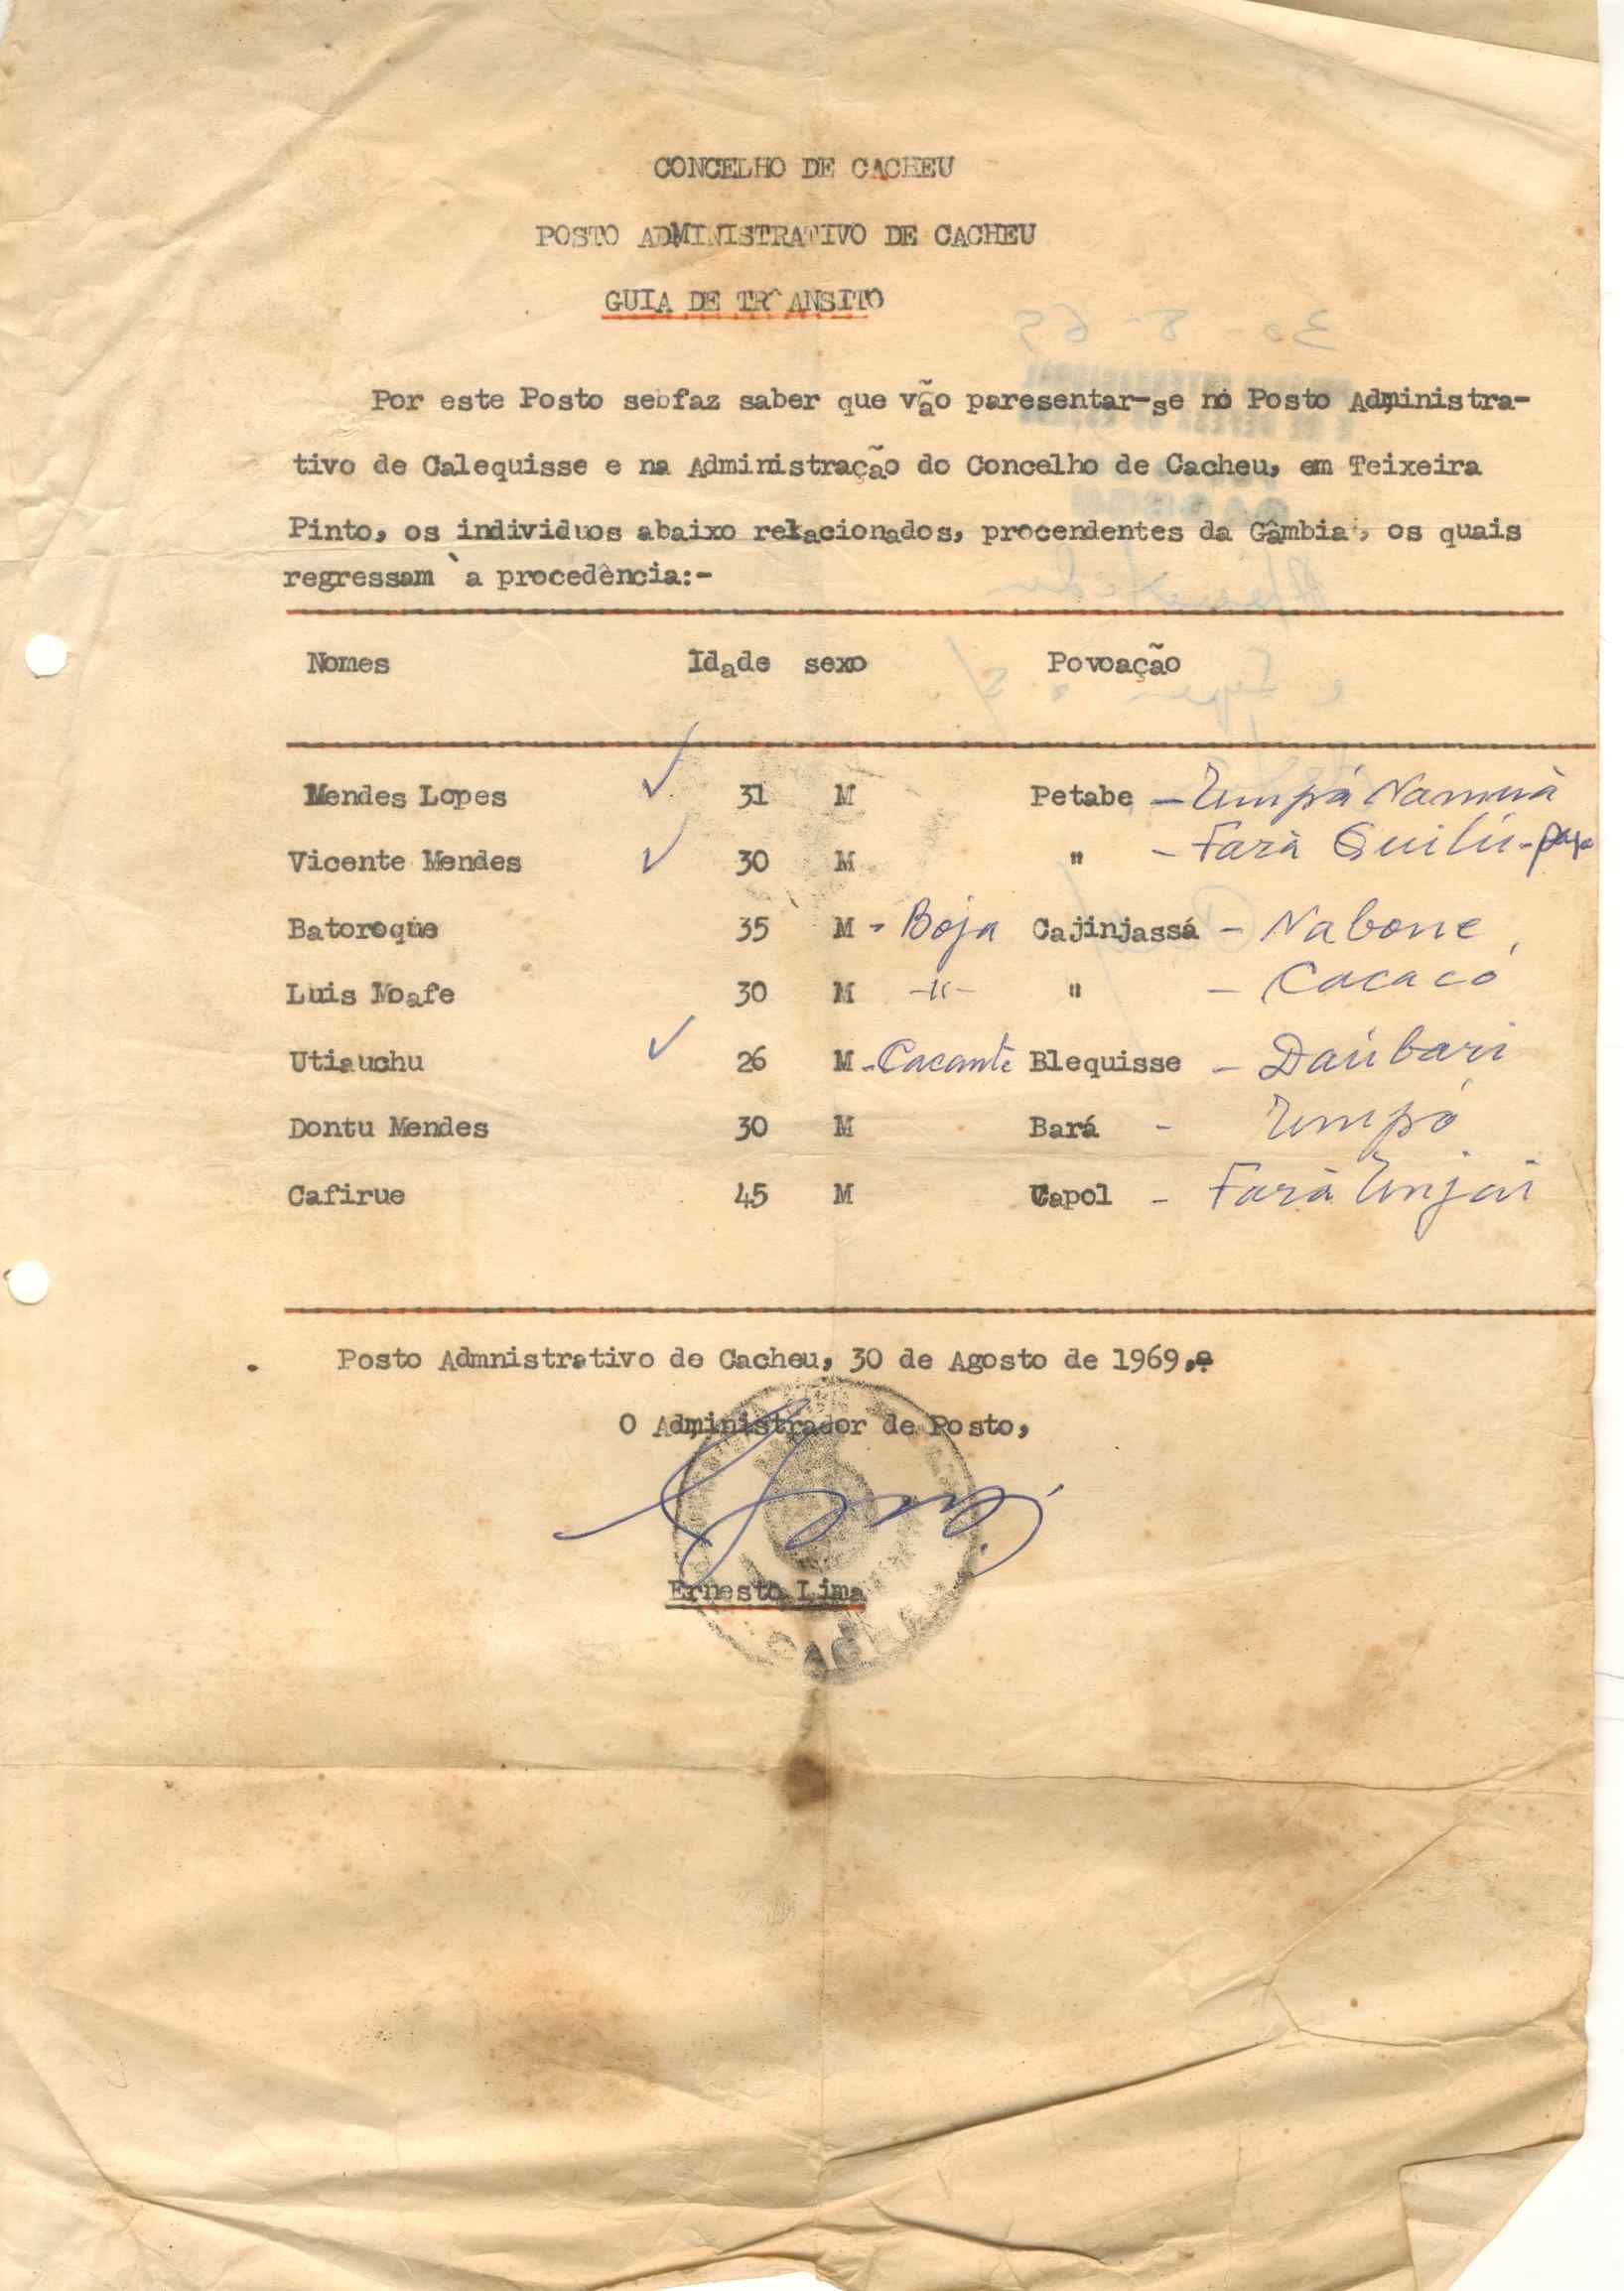 CONCELHO DE CACHEU
POSTO ADMINISTRATIVO DE CACHEU
GUIA DE TR^ANSITO
Por este Posto sebfaz saber que vão paresentar-se no Posto Administra-
tivo de Calequisse e na Administração do Concelho de Cacheu, em Teixeira
Pinto, os individuos abaixo relacionados, procendentes da Gâmbia, os quais
regressam `a procedência:-
Nomes Idade sexo Povoação
Mendes Lopes 31 M Petabe - Umpá Namuà
Vicente Mendes 30 M " - Farà Quilú -
Batoreque 35 M - Boja Cajinjassá - Nabone
Luis Moafe 30 M -"- " - Cacacó
Utiauchu 26 M - Cacante Blequisse - Daúbari
Dontu Mendes 30 M Bará - Umpó
Cafirue 45 M Capol - Farà Unjai
Posto Admnistrativo de Cacheu, 30 de Agosto de 1969,
O Administrador de Posto,
Ernesto Lima